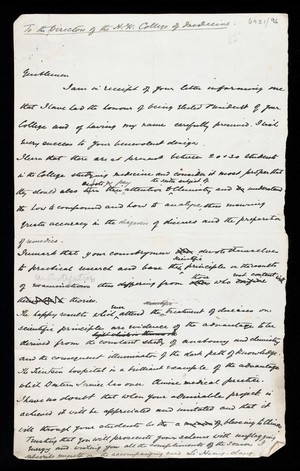 To the Directors of the H.K. College of Medicine.
6931/96
Gentlemen
I am in receipt of your letter informing me
that I have had the honour of being elected President of your
College and of having my name carefully preserved. I wish
every success to your benevolent design.
I learn that there are at present between 20 & 30 students
in the College studying medicine and consider it most proper that
they should also devote attention to Chemistry and understand
the how to compound and how to analyze, thus ensuring
greater accuracy in the diagnosis of diseases and the preparation
of remedies.
I remark that your countrymen devote themselves
to practical research and base their scientific principles on the results
of examinations thus differing from those who
theories.
The happy results which attend the treatment of diseases on
scientific principles are evidence of the advantage to be
derived from the constant study of anatomy and chemistry
and the consequent illumination of the dark path of knowledge.
The Tientsin hospital is a brilliant example of the advantage
which Doctor Irwin's has over Chinese medical practice.
I have no doubt that when your admirable project is
achieved it will be appreciated and imitated and that it
will through your students be a blessing to China.
Trusting that you will prosecute your scheme with unflagging
energy and wishing you all the compliments of the season, I
Li Hung-Chang